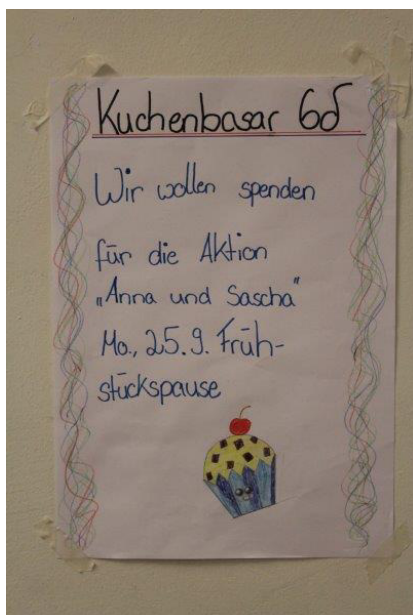 Kuchenbasar 6d
Wir wollen spenden
für die Aktion
„Anna und Sascha"
Mo., 25.9. Früh-
stückspause